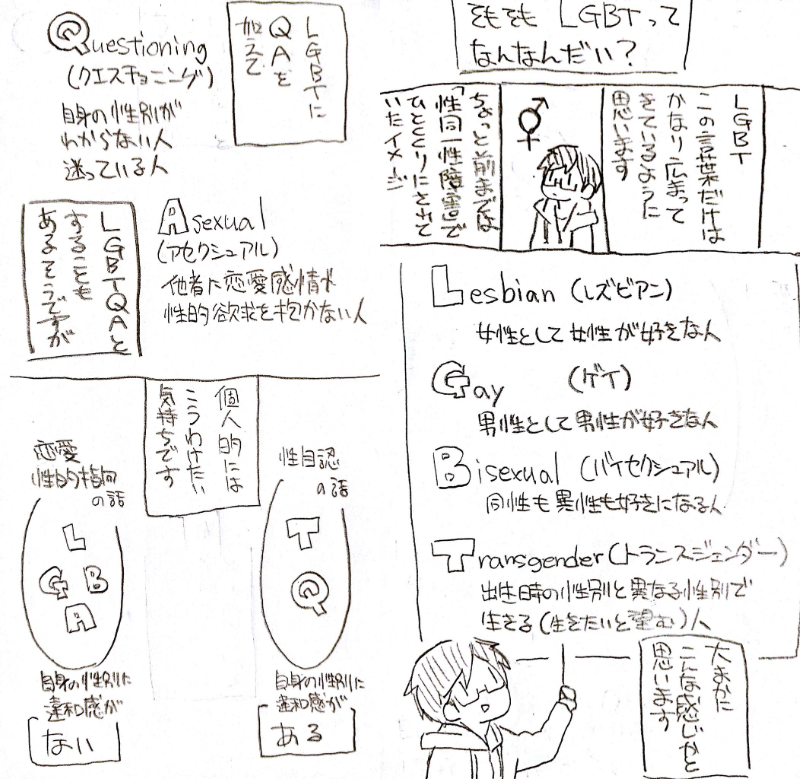 そもそも LGBTって
なんなんだい？
LGBT
この言葉だけは
かなり広まって
きているように
思います
ちょっと前までは
「性同一性障害」で
ひとくくりにされて
いたイメージ
Lesbian（レズビアン）
女性として女性が好きな人
Gay （ゲイ）
男性として男性が好きな人
Bisexual（バイセクシュアル）
同性も異性も好きになる人
Transgender（トランスジェンダー）
出生時の性別と異なる性別で
生きる（生きたいと望む）人
大まかに
こんな感じかと
思います
LGBTに
QAを
加えて
Questioning
（クエスチョニング）
自身の性別が
わからない人
迷っている人
Asexual
（アセクシュアル）
他者に恋愛感情や
性的欲求を抱かない人
LGBTQAと
することも
あるそうですが
個人的には
こうわけたい
気持ちです
性自認
の話
T
Q
自身の性別に
違和感が
ある
恋愛
性的指向
の話
L
G B
A
自身の性別に
違和感が
ない